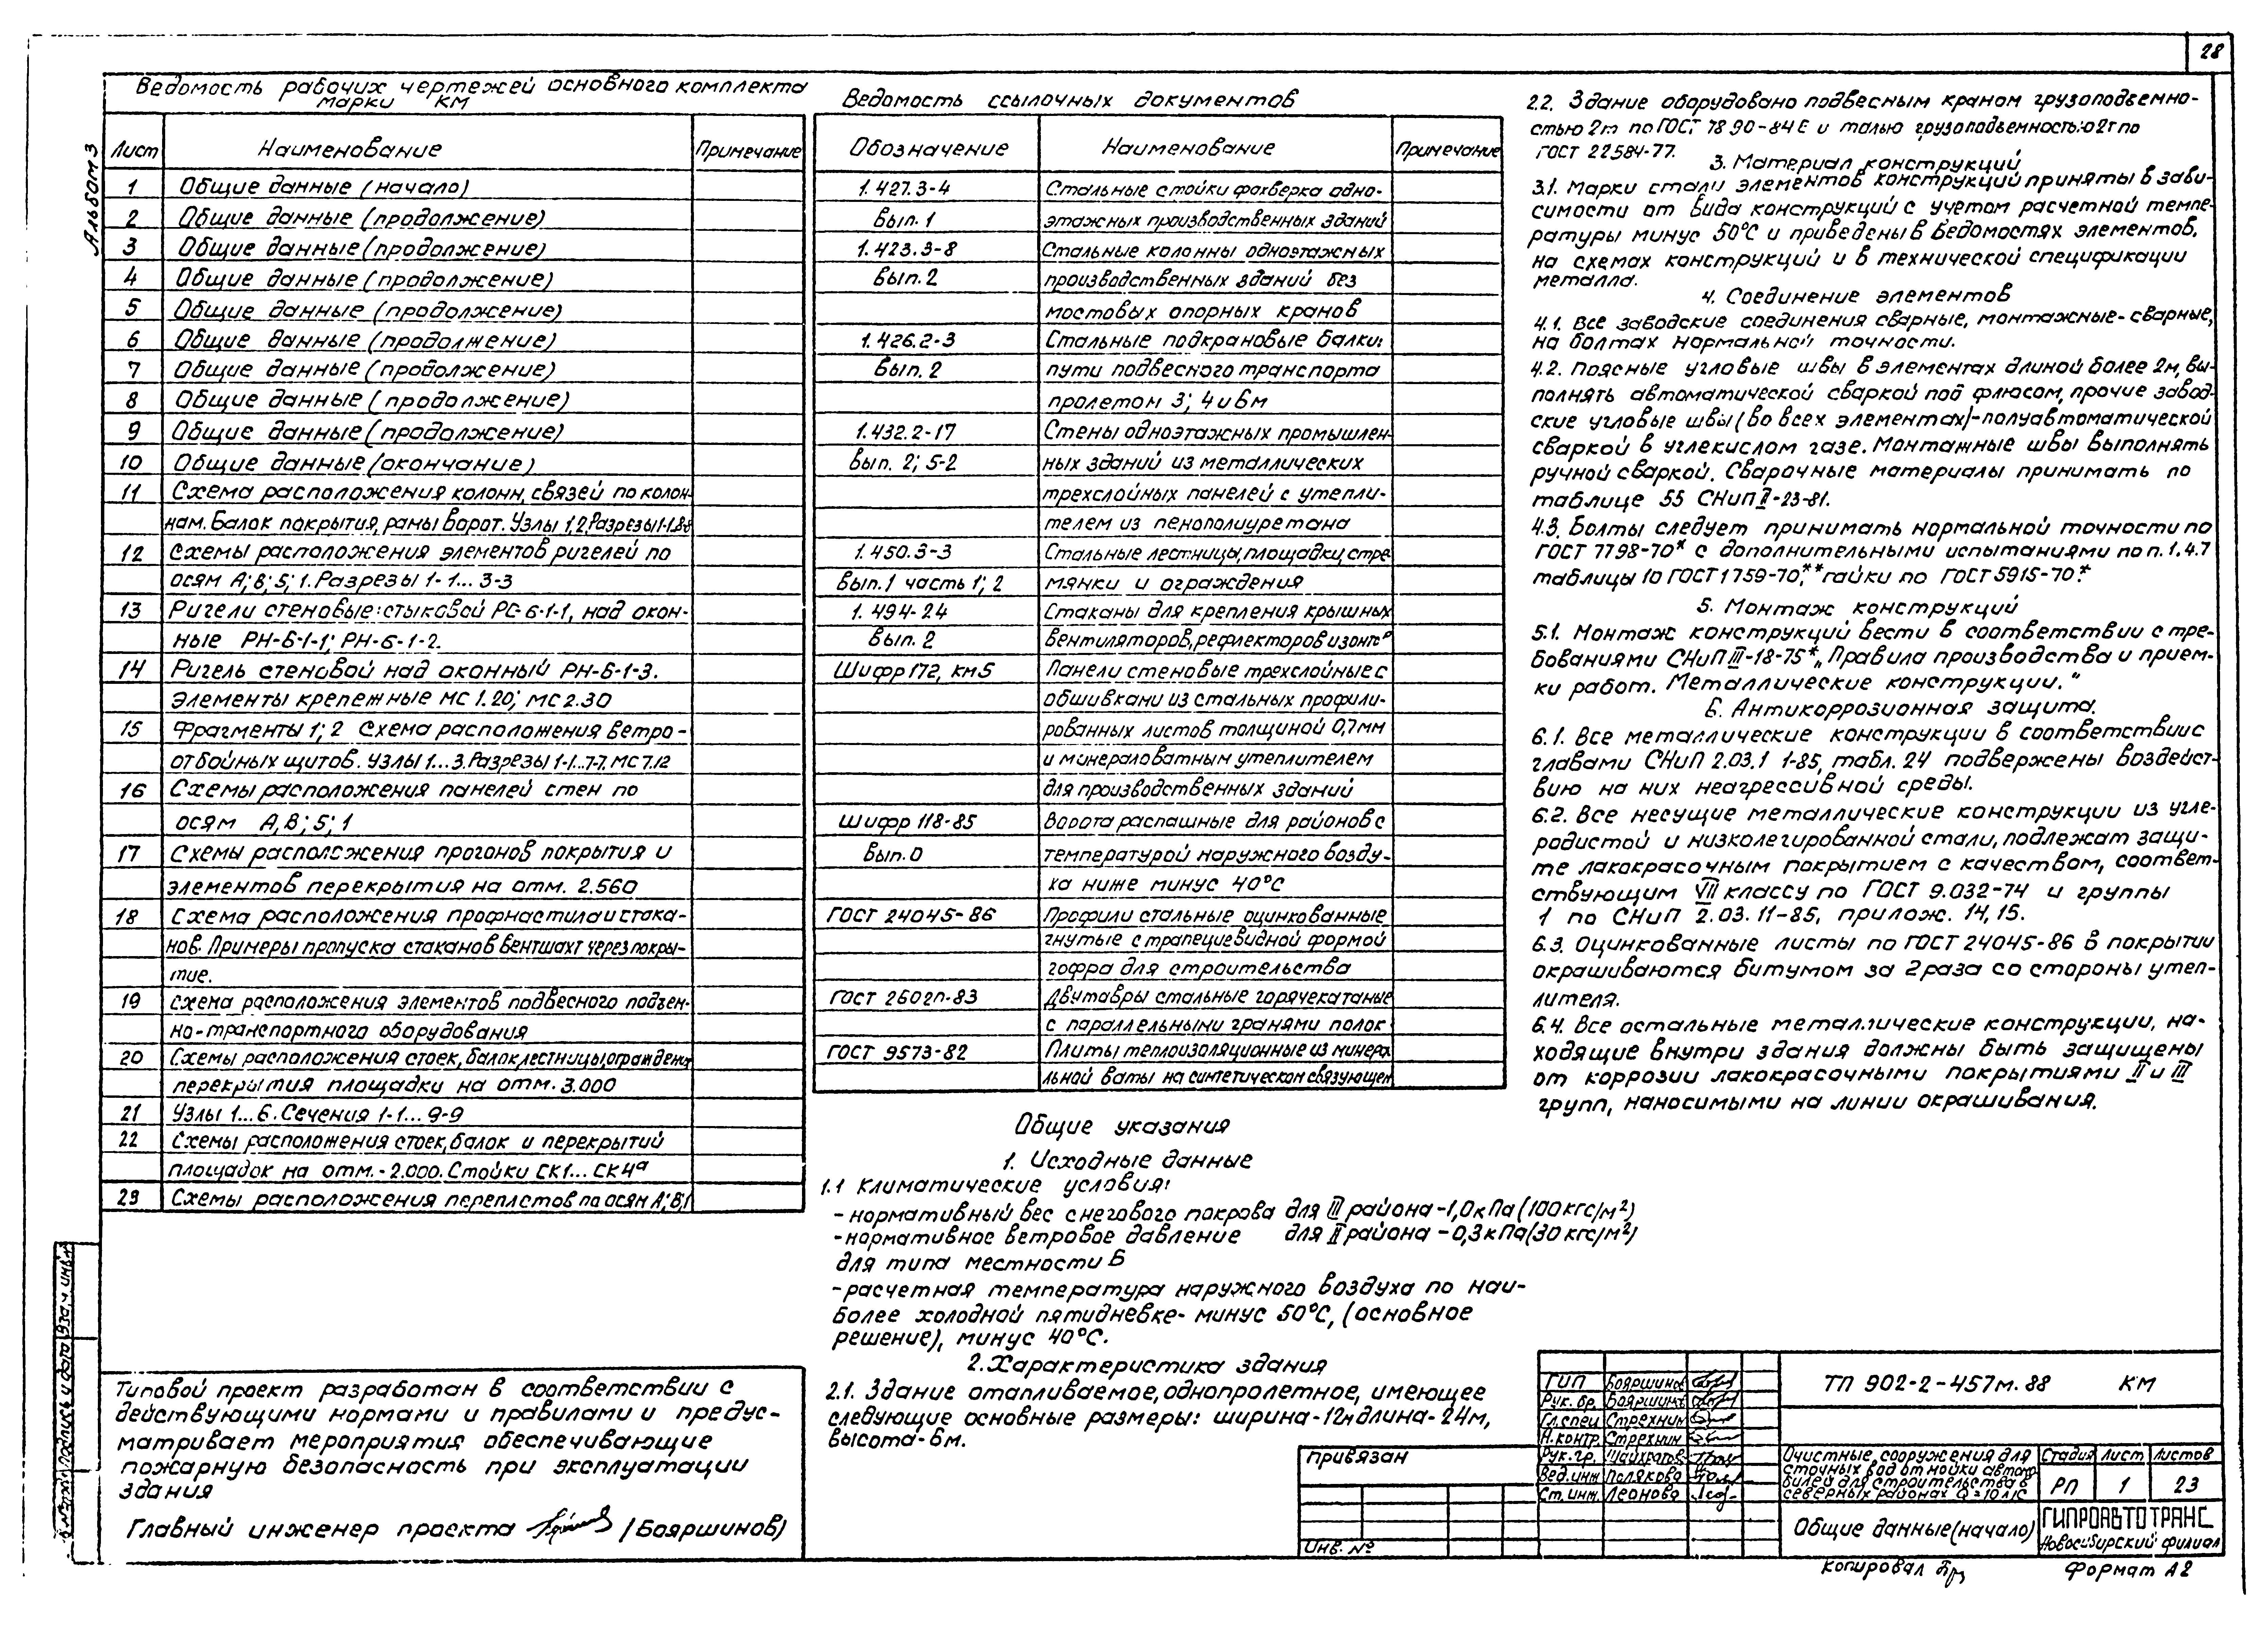 28
Альбом 3
Ведомость рабочих чертежей основного комплекта
марки КМ
Лист Наименование Примечание
1 Общие данные (начало)
2 Общие данные (продолжение)
3 Общие данные (продолжение)
4 Общие данные (продолжение)
5 Общие данные (продолжение)
6 Общие данные (продолжение)
7 Общие данные (продолжение)
8 Общие данные (продолжение)
9 Общие данные (продолжение)
10 Общие данные (окончание)
11 Схема расположения колонн, связей по колон-
нам. Балок покрытия, рамы ворот. Узлы 1,2, Разрезы
12 Схемы расположения элементов ригелей по
осям А; В; 5; 1. Разрезы 1-1... 3-3
13 Ригели стеновые: стыковой РС-6-1-1, над окон-
ные РН-6-1-1; РН-6-1-2.
14 Ригель стеновой над оконный РН-6-1-3.
Элементы крепежные МС 1.20; МС 2.30
15 Фрагменты 1; 2 Схема расположения ветро-
отбойных щитов. Узлы 1...3. Разрезы 1-1...7-7. МС 7.12
16 Схемы расположения панелей стен по
осям А, В; 5; 1
17 Схемы расположения прогонов покрытия и
элементов перекрытия на отм. 2.560
18 Схема расположения профнастила и стака-
нов. Примеры пропуска стаканов вентшахт через покры-
тие.
19 Схема расположения элементов подвесного подъем-
но-транспортного оборудования
20 Схемы расположения стоек, балок, лестницы, ограждения
перекрытия площадки на отм. 3.000
21 Узлы 1...6. Сечения 1-1... 9-9
22 Схемы расположения стоек, балок и перекрытий
площадок на отм. -2.000. Стойки СК1... СК4ª
23 Схемы расположения переплетов по осям А; В; 1
Типовой проект разработан в соответствии с
действующими нормами и правилами и предус-
матривает мероприятия обеспечивающие
пожарную безопасность при эксплуатации
здания
Главный инженер проекта (Бояршинов)
Ведомость ссылочных документов
Обозначение Наименование Примечание
1.427.3-4 Стальные стойки фахверка одно-
Вып. 1 этажных производственных зданий
1.423.3-8 Стальные колонны одноэтажных
Вып. 2 производственных зданий без
мостовых опорных кранов
1.426.2-3 Стальные подкрановые балки:
Вып. 2 пути подвесного транспорта
пролетом 3; 4 и 6м
1.432.2-17 Стены одноэтажных промышлен-
Вып. 2; 5-2 ных зданий из металлических
трехслойных панелей с утепли-
телем из пенополиуретана
1.450.3-3 Стальные лестницы, площадки, стре
Вып.1 часть 1; 2 мянки и ограждения
1.494-24 Стаканы для крепления крышных
Вып. 2 вентиляторов, рефлекторов и зонтов
Шифр 172, км5 Панели стеновые трехслойные с
обшивками из стальных профили-
рованных листов толщиной 0,7мм
и минераловатным утеплителем
для производственных зданий
Шифр 118-85 Ворота распашные для районов с
Вып. 0 температурой наружного возду-
ха ниже минус 40°С
ГОСТ 24045-86 Профили стальные оцинкованные
гнутые с трапециевидной формой
гофра для строительства
ГОСТ 26020-83 Двутавры стальные горячекатаные
с параллельными гранями полок
ГОСТ 9573-82 Плиты теплоизоляционные из минера
льной ваты на синтетическом связующем
Общие указания
1. Исходные данные
1.1 Климатические условия:
- нормативный вес снегового покрова для III района -1,0кПа (100 кгс/м²)
- нормативное ветровое давление для II района -0,3 кПа (30 кгс/м²)
для типа местности Б
- расчетная температура наружного воздуха по наи-
более холодной пятидневке- минус 50°С, (основное
решение), минус 40°С.
2. Характеристика здания
2.1. Здание отапливаемое, однопролетное, имеющее
следующие основные размеры: ширина-12м длина-24м,
высота-6м.
2.2. Здание оборудовано подвесным краном грузоподъемно-
стью 2т по ГОСТ 7890-84Е и талью грузоподъемностью 2т по
ГОСТ 22584-77.
3. Материал конструкций
3.1. Марки стали элементов конструкций приняты в зави-
симости от вида конструкций с учетом расчетной темпе-
ратуры минус 50°С и приведены в ведомостях элементов,
на схемах конструкций и в технической спецификации
металла.
4. Соединение элементов
4.1. Все заводские соединения сварные, монтажные-сварные,
на болтах нормальной точности.
4.2. Поясные угловые швы в элементах длиной более 2м, вы-
полнять автоматической сваркой под флюсом, прочие завод-
ские угловые швы (во всех элементах)-полуавтоматической
сваркой в углекислом газе. Монтажные швы выполнять
ручной сваркой. Сварочные материалы принимать по
таблице 55 СНиП II-23-81.
4.3. Болты следует принимать нормальной точности по
ГОСТ 7798-70* с дополнительными испытаниями по п. 1.4.7
таблицы 10 ГОСТ 1759-70,** гайки по ГОСТ 5915-70*.
5. Монтаж конструкций
5.1. Монтаж конструкций вести в соответствии с тре-
бованиями СНиП III-18-75*„Правила производства и прием-
ки работ. Металлические конструкции."
6. Антикоррозионная защита.
6.1. Все металлические конструкции в соответствии с
главами СНиП 2.03.1 1-85, табл. 24 подвержены воздейст-
вию на них неагрессивной среды.
6.2. Все несущие металлические конструкции из угле-
родистой и низколегированной стали, подлежат защи-
те лакокрасочным покрытием с качеством, соответ-
ствующим VII классу по ГОСТ 9.032-74 и группы
1 по СНиП 2.03.11-85, прилож. 14, 15.
6.3. Оцинкованные листы по ГОСТ 24045-86 в покрытии
окрашиваются битумом за 2 раза со стороны утеп-
лителя.
6.4. Все остальные металлические конструкции, на-
ходящие внутри здания должны быть защищены
от коррозии лакокрасочными покрытиями II и III
групп, наносимыми на линии окрашивания.
Привязан
Инв. №
ГИП Бояршинов
Рук. бр. Бояршинов
Гл. спец Стрехнин
Н. контр. Стрехнин
Рук. гр.
Вед. инж Полякова
Ст. инж. Леонова
ТП 902-2-457м.88 КМ
Очистные сооружения для
сточных вод от мойки автомо
билей для строительства в
северных районах Q=10 л/с
Стадия Лист Листов
РП 1 23
Общие данные (начало)
ГИПРОАВТОТРАНС
Новосибирский филиал
Копировал
Формат А2
Подпись и дата Взам. инв.